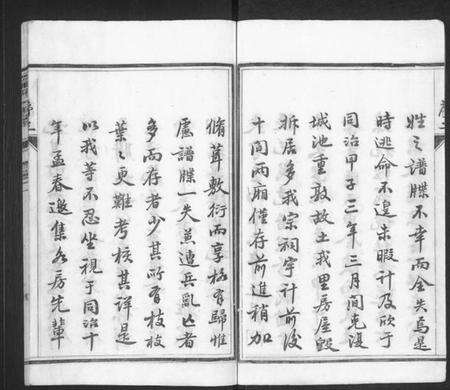 姓之譜牒不幸而全失焉是
時逃命不遑未暇計及欣于
同治甲子三年三月間克復
城池重敦故土我里房屋毀
拆居多我宗祠寧計前後
十間兩廂僅存前進稍加
脩葺敷衍而享格有歸惟
慮譜牒一失蔥連兵亂亡者
多而存者少其所有枝枝
葉葉更難考核其詳是
以我等不忍坐視于同治十
年孟春邀集各房先輩